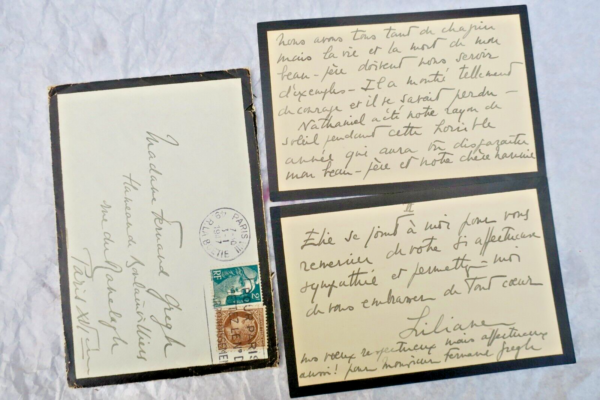 Madame Fernand Gregh
Hameau de Boulainvilliers
rue du Ranelagh
Paris XVI
PARIS
RF
2F
RF
nous avons tous tant de chagrin
mais la vie et la mort de mon
beau-père doivent nous servir
d'exemples - Il a montré tellement
de courage et il se savait perdu -
Nathaniel a été notre rayon de
soleil pendant cette horrible
année qui aura vu disparaître
mon beau-père et notre chère
II
Elie se joint à moi pour vous
remercier de votre si affectueuse
sympathie et permettez-moi
de vous embrasser de tout cœur
Liliane
nos vœux respectueux mais affectueux
aussi! pour Monsieur Fernand Gregh